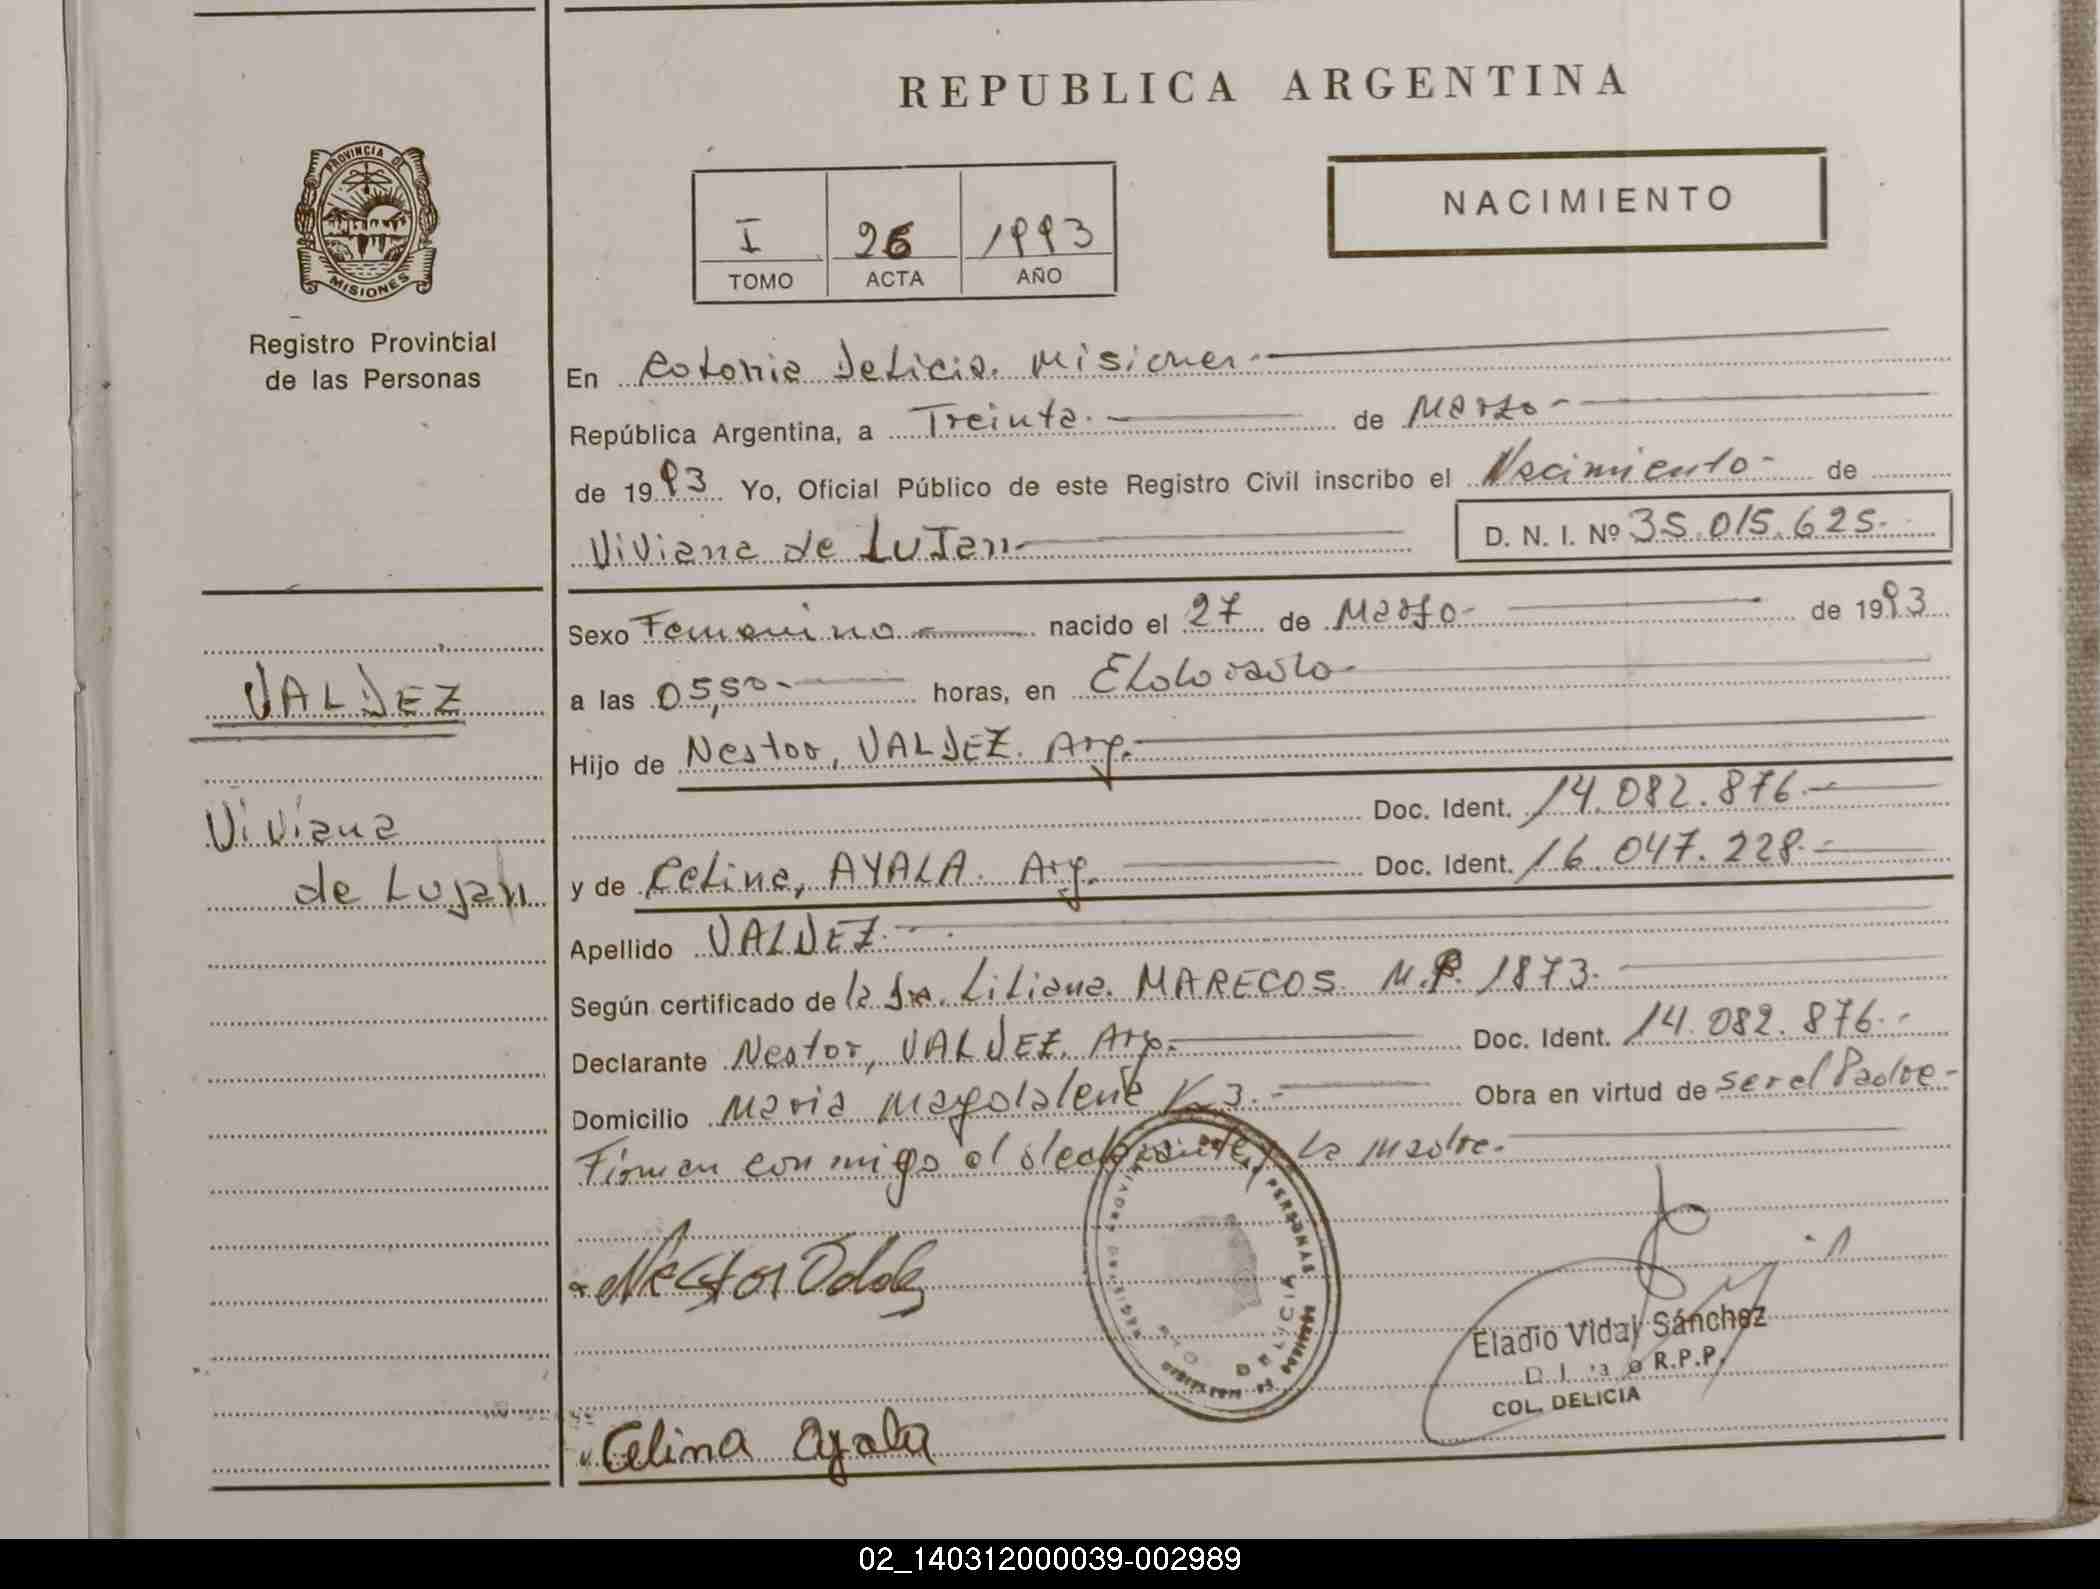 REPUBLICA ARGENTINA
PROVINCIA DE
MISIONES
Registro Provincial
de las Personas
I 26 1993
TOMO ACTA AÑO
NACIMIENTO
En Colonia Delicia. Misiones-
República Argentina, a Treinta. de Marzo-
de 1993. Yo, Oficial Público de este Registro Civil inscribo el Nacimiento- de
Viviana de LuJan- D. N. I. Nº 35.015.625.-
VALDEZ
Viviana
de Lujan
Sexo Femenino- nacido el 27 de Marzo- de 1993
a las 05,50- horas, en Eldorado-
Hijo de Nestor, VALDEZ. Arg.-
Doc. Ident. 14.082.876.-
y de Celina, AYALA. Arg. Doc. Ident. 16.047.228.-
Apellido VALDEZ.-
Según certificado de la Dra. Liliana. MARECOS. M.P. 1873.-
Declarante Nestor, VALDEZ. Arg.- Doc. Ident. 14.082.876.-
Domicilio Maria Magdalena K 3.- Obra en virtud de ser el Padre-
Firman conmigo el declarante y la madre.-
Nestor
PERSONAS
Eladio Vidal Sánchez
R.P.P.
COL. DELICIA
Celina Ayala
02_140312000039-002989